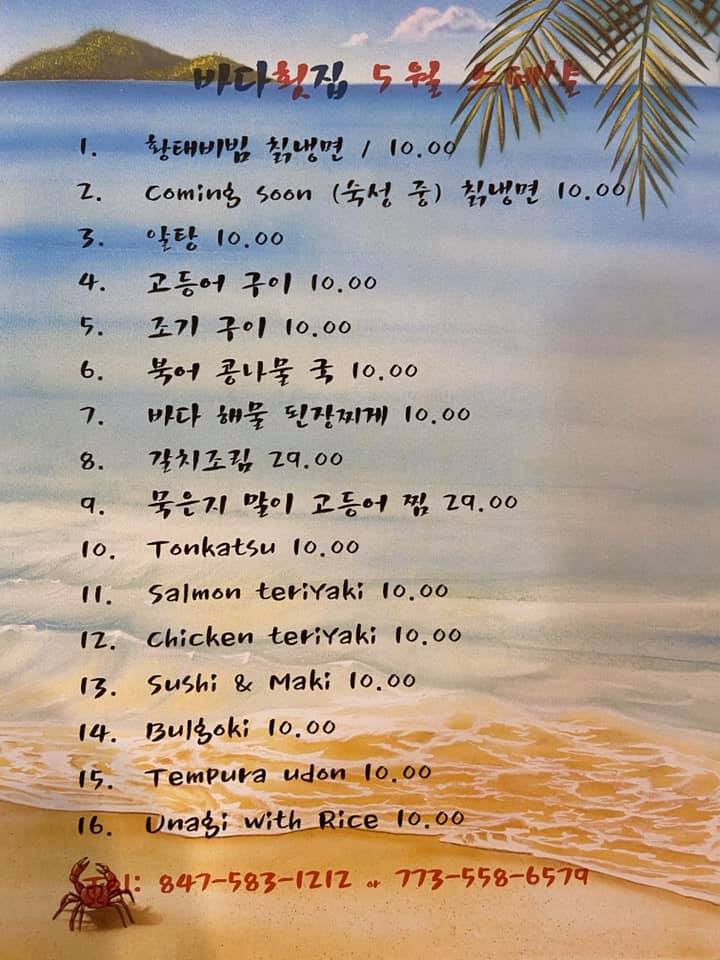 바다횟집 5월 스페샬
1. 황태비빔 칡냉면 / 10.00
2. Coming soon (숙성 중) 칡냉면 10.00
3. 알탕 10.00
4. 고등어 구이 10.00
5. 조기 구이 10.00
6. 북어 콩나물 국 10.00
7. 바다 해물 된장찌게 10.00
8. 갈치조림 29.00
9. 묵은지 말이 고등어 찜 29.00
10. Tonkatsu 10.00
11. Salmon teriyaki 10.00
12. Chicken teriyaki 10.00
13. Sushi & Maki 10.00
14. Bulgoki 10.00
15. Tempura udon 10.00
16. Unagi with Rice 10.00
847-583-1212 or 773-558-6579